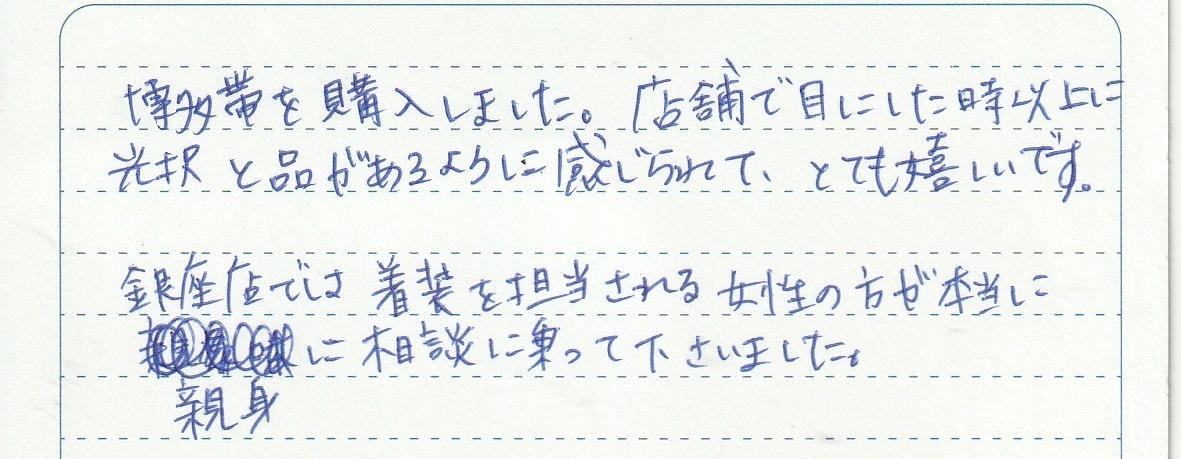 博多帯を購入しました。店舗で目にした時以上に
光沢と品があるように感じられて、とても嬉しいです。
銀座店では着装を担当される女性の方が本当に
に相談に乗って下さいました。
親身